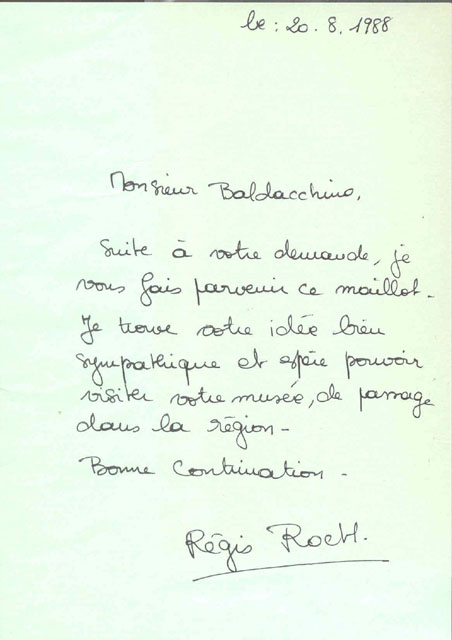 le : 20. 8. 1988
Monsieur Baldacchino,
Suite à votre demande, je
vous fais parvenir ce maillot -
Je trouve votre idée bien
sympathique et espère pouvoir
visiter votre musée, de passage
dans la région -
Bonne Continuation -
Régis Roch.